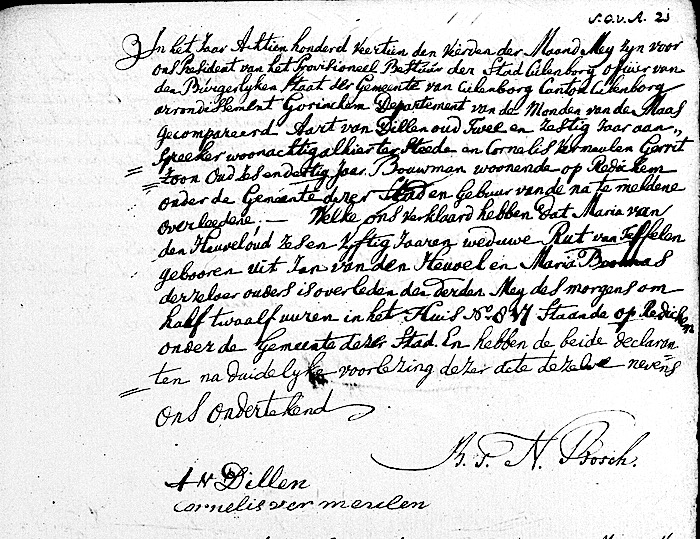 S.O.V.A. 23
In het Jaar Achtien honderd Veertien den Vierden der Maand Mey zyn voor
ons President van het Provisioneel Bestuur der Stad Culenborg officier van
den Burgerlyken Staat der Gemeente van Culenborg Canton Culenborg
arrondissement Gorinchem Departement van de Monden van de Maas
gecompareerd Aart van Dillen oud Twee en Zestig Jaar aan„
spreeker woonachtig alhier ter Steede en Cornelis Vermeulen Gerrit
Zoon Oud Ses en dertig Jaar Bouwman woonende op Redichem
onder de Gemeente dezer Stad en Gebuur van de na te meldene
overledene. — Welke ons verklaard hebben Dat Maria van
den Heuvel oud zes en zyftig Jaaren weduwe Rut van Teffelen
gebooren uit Jan van den Heuvel en Maria
derzelver ouders is overleden den derden Mey des morgens om
half twaalf uuren in het Huis No. 837 Staande op Redichem
onder de Gemeente dezer Stad En hebben de beide declaran
ten na duidelyke voorlezing dezer acte dezelve nevens
ons ondertekend
N. Bosch.
A V Dillen
Cornelis ver meulen